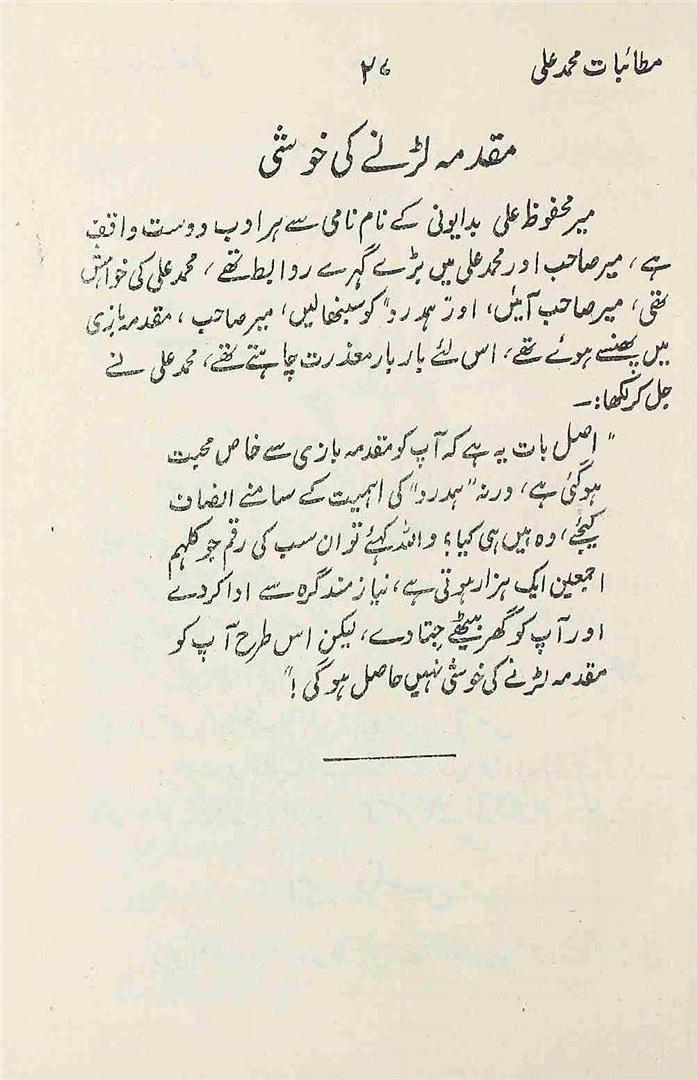 مطائبات محمد علی
۲۶
مقدمہ لڑنے کی خوشی
میر محفوظ علی بدایونی کے نام نامی سے ہر ادب دوست واقف
ہے، میر صاحب اور محمد علی میں بڑے گہرے روابط تھے، محمد علی کی خواہش
تھی، میر صاحب آئیں، اور "ہمدرد" کو سنبھالیں، میر صاحب، مقدمہ بازی
میں پھنسے ہوئے تھے، اس لئے بار بار معذرت چاہتے تھے، محمد علی نے
جل کر لکھا:۔
"اصل بات یہ ہے کہ آپ کو مقدمہ بازی سے خاص محبت
ہو گئی ہے، ورنہ "ہمدرد" کی اہمیت کے سامنے انصاف
کیجئے، وہ ہیں ہی کیا؟ واللہ کہئے تو ان سب کی رقم جو کلہم
اجمعین ایک ہزار ہوتی ہے، نیاز مند گرہ سے ادا کر دے
اور آپ کو گھر بیٹھے جتا دے، لیکن اس طرح آپ کو
مقدمہ لڑنے کی خوشی نہیں حاصل ہو گی!"